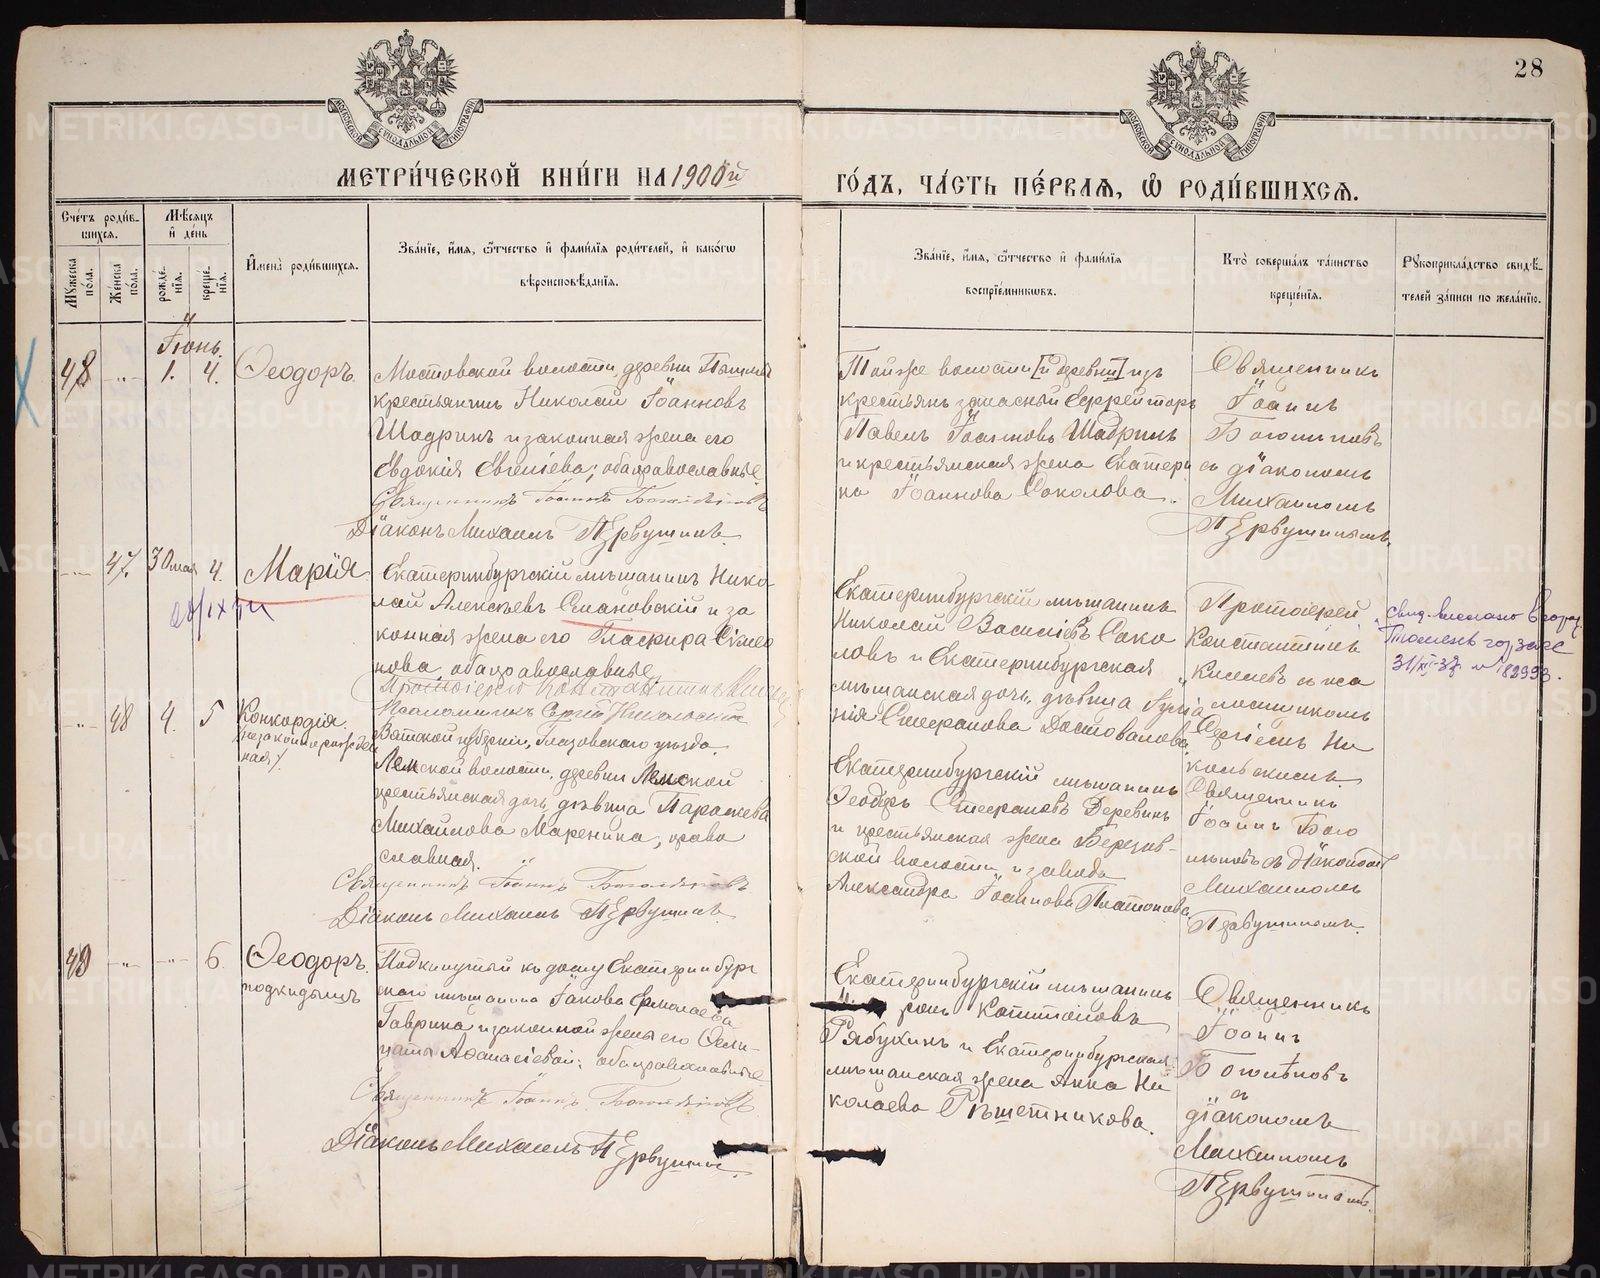 28
МЕТРИ́ЧЕСКОЙ КНИ́ГИ НА 1900й
ГО́ДЪ, ЧА́СТЬ ПЕ́РВАЯ, Ѡ҆ РОДИ́ВШИХСЯ.
Сче́тъ роди́в-
шихся.
Мѣ́сяцъ
и҆ де́нь
Мꙋ́жеска
по́ла.
Же́нска
по́ла.
рожде́-
нїя.
креще́-
нїя.
И҆мена̀ роди́вшихся.
Зва́нїе, и҆́мя, ѻ҆́тчество и҆ фами́лїя роди́телей, и҆ како́гѡ
вѣроисповѣ́данїя.
Зва́нїе, и҆́мя, ѻ҆́тчество и҆ фами́лїя
воспрїе́мникѡвъ.
Кто̀ соверша́лъ та́инство
креще́нїя.
Рꙋкоприкла́дство свидѣ́-
телей за́писи по жела́нїю.
Іюнь.
48 " 1. 4. Ѳеодоръ.
Мостовской волости, деревни
крестьянинъ Николай Іоанновъ
Шадринъ и законная жена его
Евдокія Евгеніева; оба православные.
Священникъ Іоаннъ Боголѣповъ
Діаконъ Михаилъ Первушинъ.
Той же волости [и деревни] изъ
крестьянъ запасный Ефрейторъ
Павелъ Іоанновъ Шадринъ
и крестьянская жена Екатери
на Іоаннова Соколова.
Священникъ
Іоаннъ
Боголѣповъ
съ діакономъ
Михаиломъ
Первушинымъ.
47. 30 мая 4. Марія
Екатеринбургскій мѣщанинъ Нико
лай Алексѣевъ Семановскій и за
конная жена его Глафира Симео
нова, оба православные.
Протоіерей Константинъ
Псаломщикъ Сергій Никольскій
Екатеринбургскій мѣщанинъ
Николай Василіевъ Соко
ловъ и Екатеринбургская
мѣщанская дочь, дѣвица Іула
нія Стефанова Достовалова.
Протоіерей
Константинъ
съ пса
ломщикомъ
Сергіемъ Ни
кольскимъ
31/XII-37 № 82993.
" 48 4. 5 Конкордія
(незаконнорожден
ная)
Вятской губерніи, Глазовскаго уѣзда,
Лемской волости, деревни Лемской
крестьянская дочь, дѣвица Параскева
Михаилова Маренина, право
славная.
Священникъ Іоаннъ Боголѣповъ
Діаконъ Михаилъ Первушинъ.
Екатеринбургскій мѣщанинъ
Ѳеодоръ Стефановъ Деревинъ
и крестьянская жена Березов-
ской волости и завода
Александра Іоаннова Платонова.
Священникъ
Іоаннъ Бого
лѣповъ съ діакономъ
Михаиломъ
Первушинымъ.
49 " " 6. Ѳеодоръ.
подкидышъ
Подкинутый къ дому Екатеринбург
скаго мѣщанина Іакова Ермолаева
Гаврина и законной жены его Фели-
цаты Аѳанасіевой; оба православные
Священникъ Іоаннъ Боголѣповъ
Діаконъ Михаилъ Первушинъ.
Екатеринбургскій мѣщанинъ
Рябухинъ и Екатеринбургская
мѣщанская жена Анна Ни
колаева Рѣшетникова.
Священникъ
Іоаннъ
Боголѣповъ
съ
діакономъ
Михаиломъ
Первушинымъ.